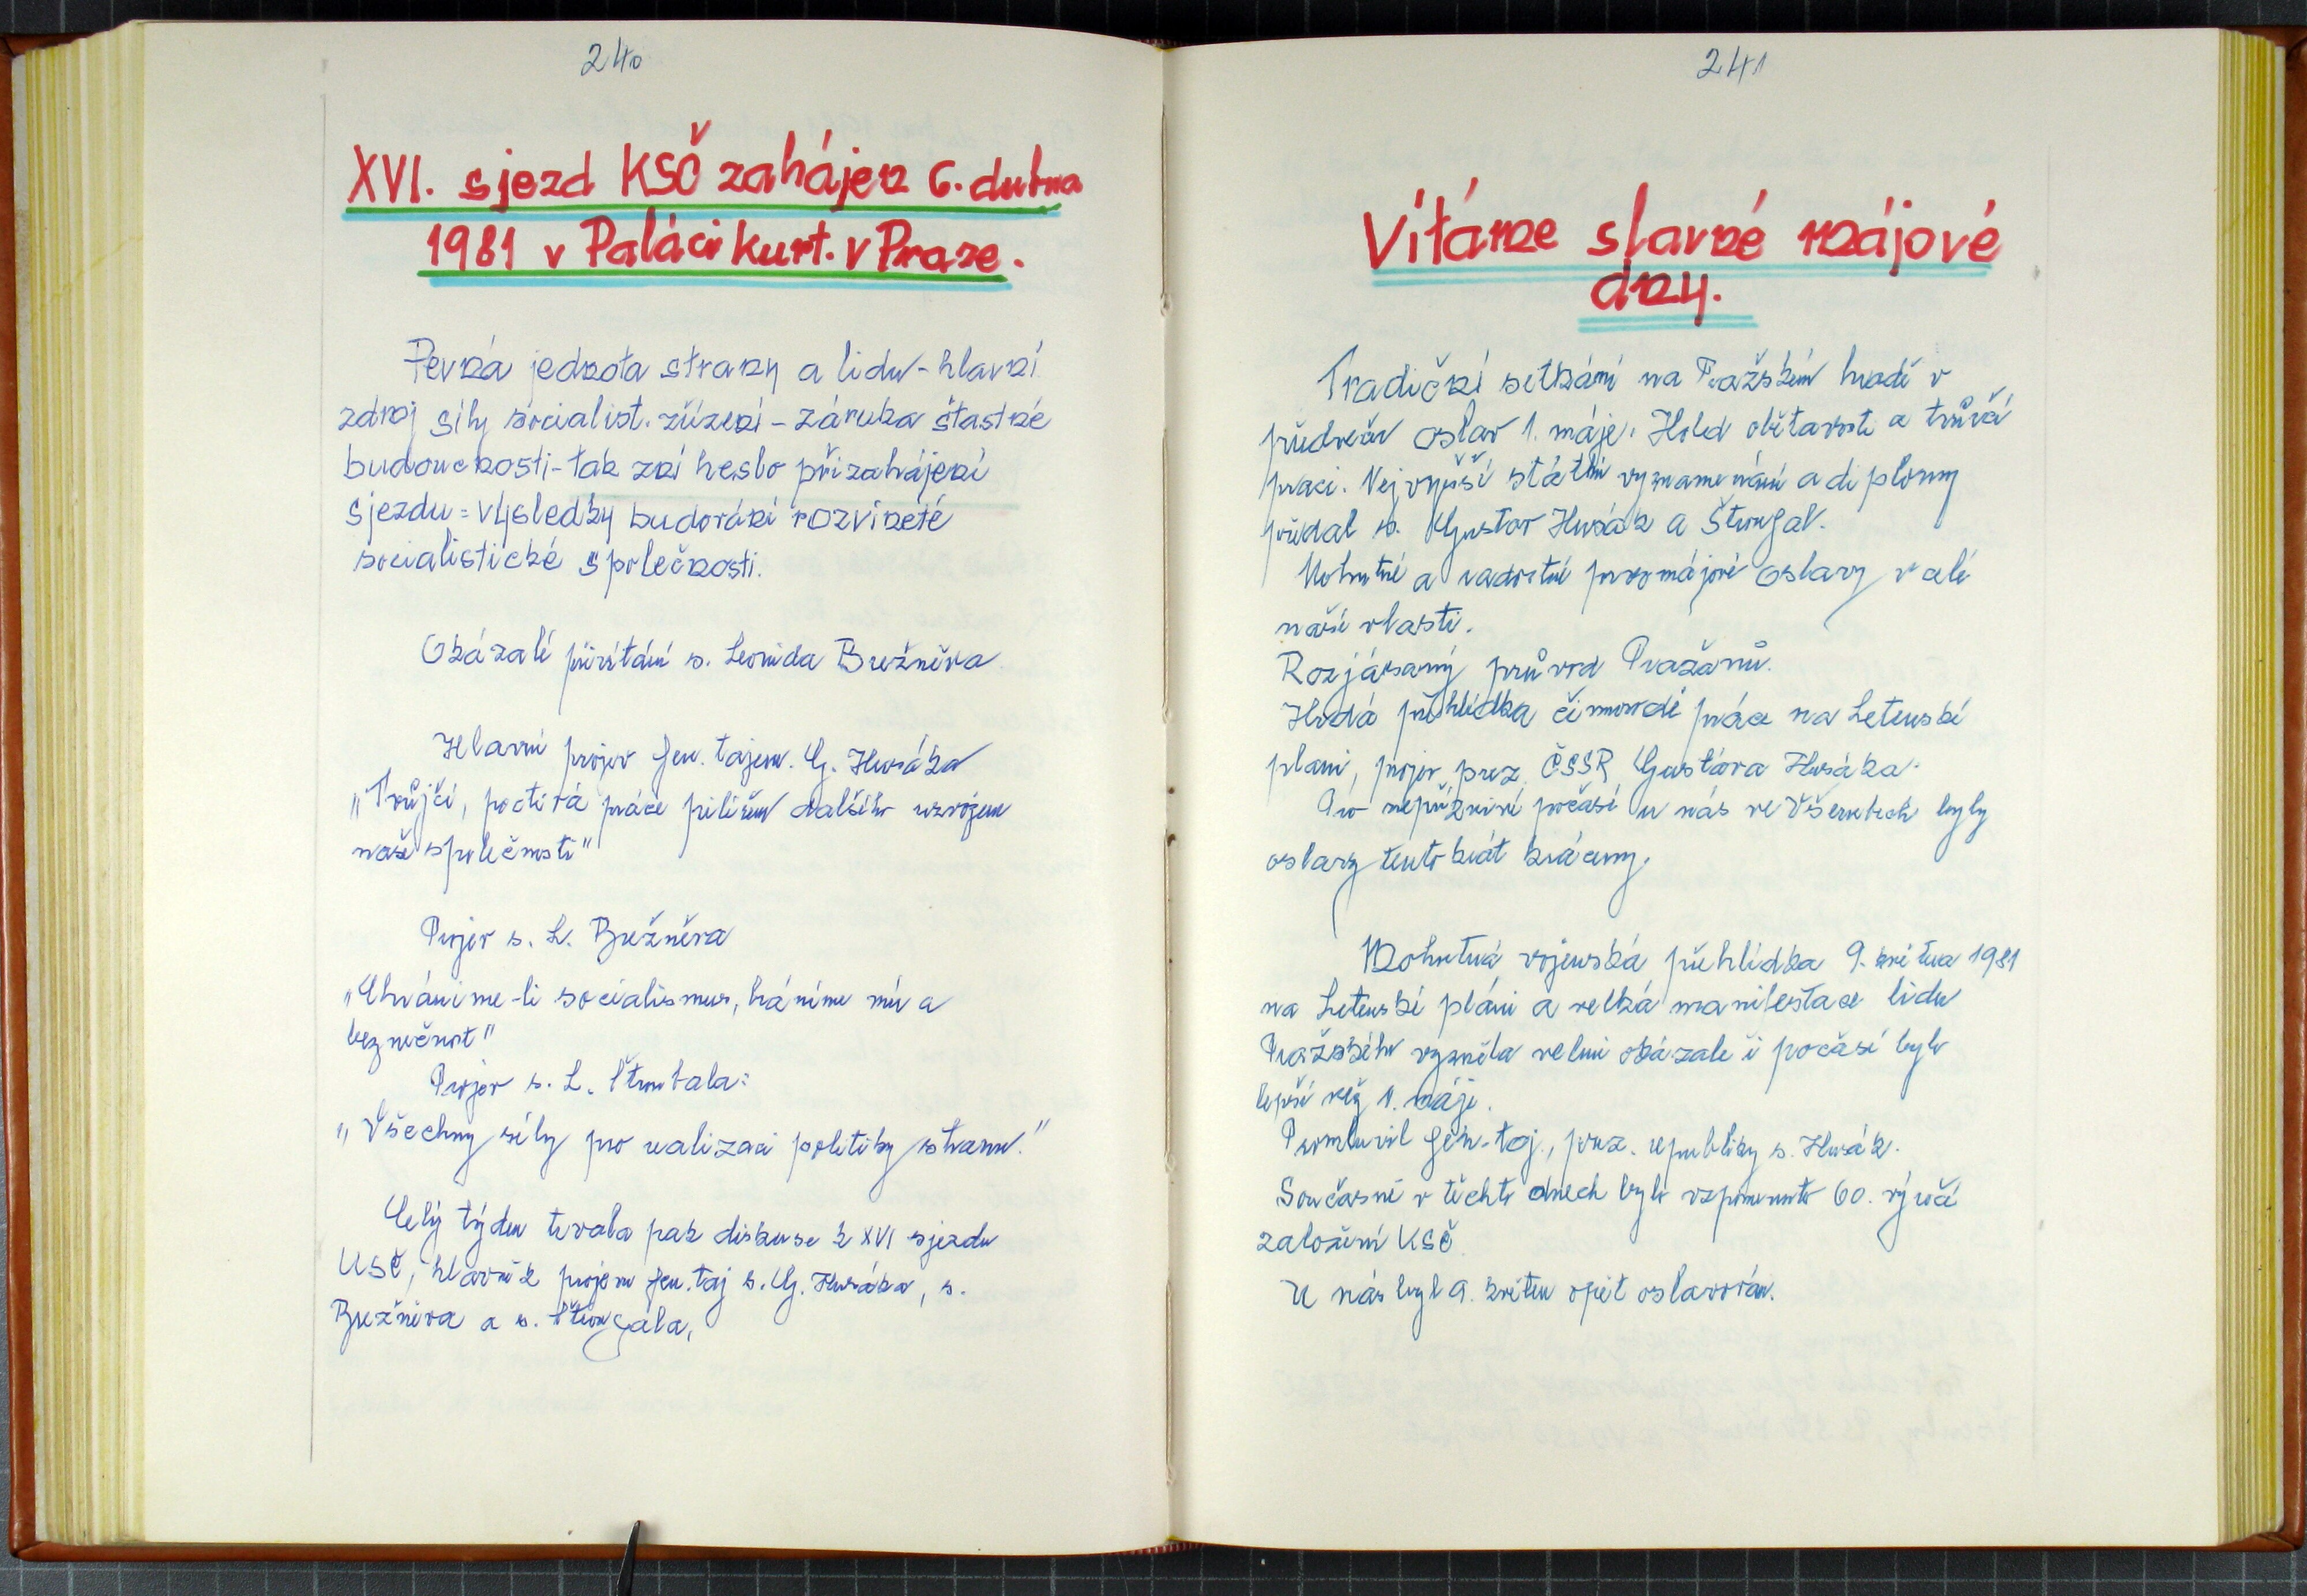 240
XVI. sjezd KSČ zahájen 6. dubna
1981 v Paláci kult. v Praze.
Pevná jednota strany a lidu - hlavní
zdroj síly socialist. zřízení - záruka štastné
budoucnosti - tak zní heslo při zahájení
sjezdu = výsledky budování rozvineté
socialistické společnosti.
Okázalé přivítání s. Leonida Brežněva
Hlavní projev gen. tajem. G. Husáka
„Tvůjčí, poctivá práce pilířem dalšího rozvojem
naší společnosti"
Projev s. L. Brežněva
„Chráníme-li socialismus, háníme mír a
bezpečnost"
Projev s. L. Štroubala:
„Všechny síly pro realizaci politiky stranu."
Celý týden trvala pak diskuse k XVI sjezdu
KSČ, hlavně k projevu gen. taj s. G. Husáka, s.
Brežněva a s. Štrougala,
241
Vítáme slavné májové
dny.
Tradiční setkání na Pražském hradě v
předvečer oslav 1. máje. Hold obětavosti a tvůrčí
práci. Nejvyšší státní vyznamenání a diplomy
předal s. Gustav Husák a Štrougal.
Mohutné a radostné prvomájové oslavy v celé
naší vlasti.
Rozjásaný průvod Pražanů.
Hrdá přehlídka činorodé práce na Letenské
pláni, projev prez. ČSSR Gustáva Husáka.
Pro nepříznivé počasí u nás ve Všerubech byly
oslavy tentokrát kráceny.
Mohutná vojenská přehlídka 9. května 1981
na Letenské pláni a velká manifestace lidu
Pražského vyzněla velmi okázale i počasí bylo
lepší než 1. máje.
Promluvil gen. taj., prez. republiky s. Husák.
Současně v těchto dnech bylo vzpomenuto 60. výročí
založení KSČ
U nás byl 9. květen opět oslavován.